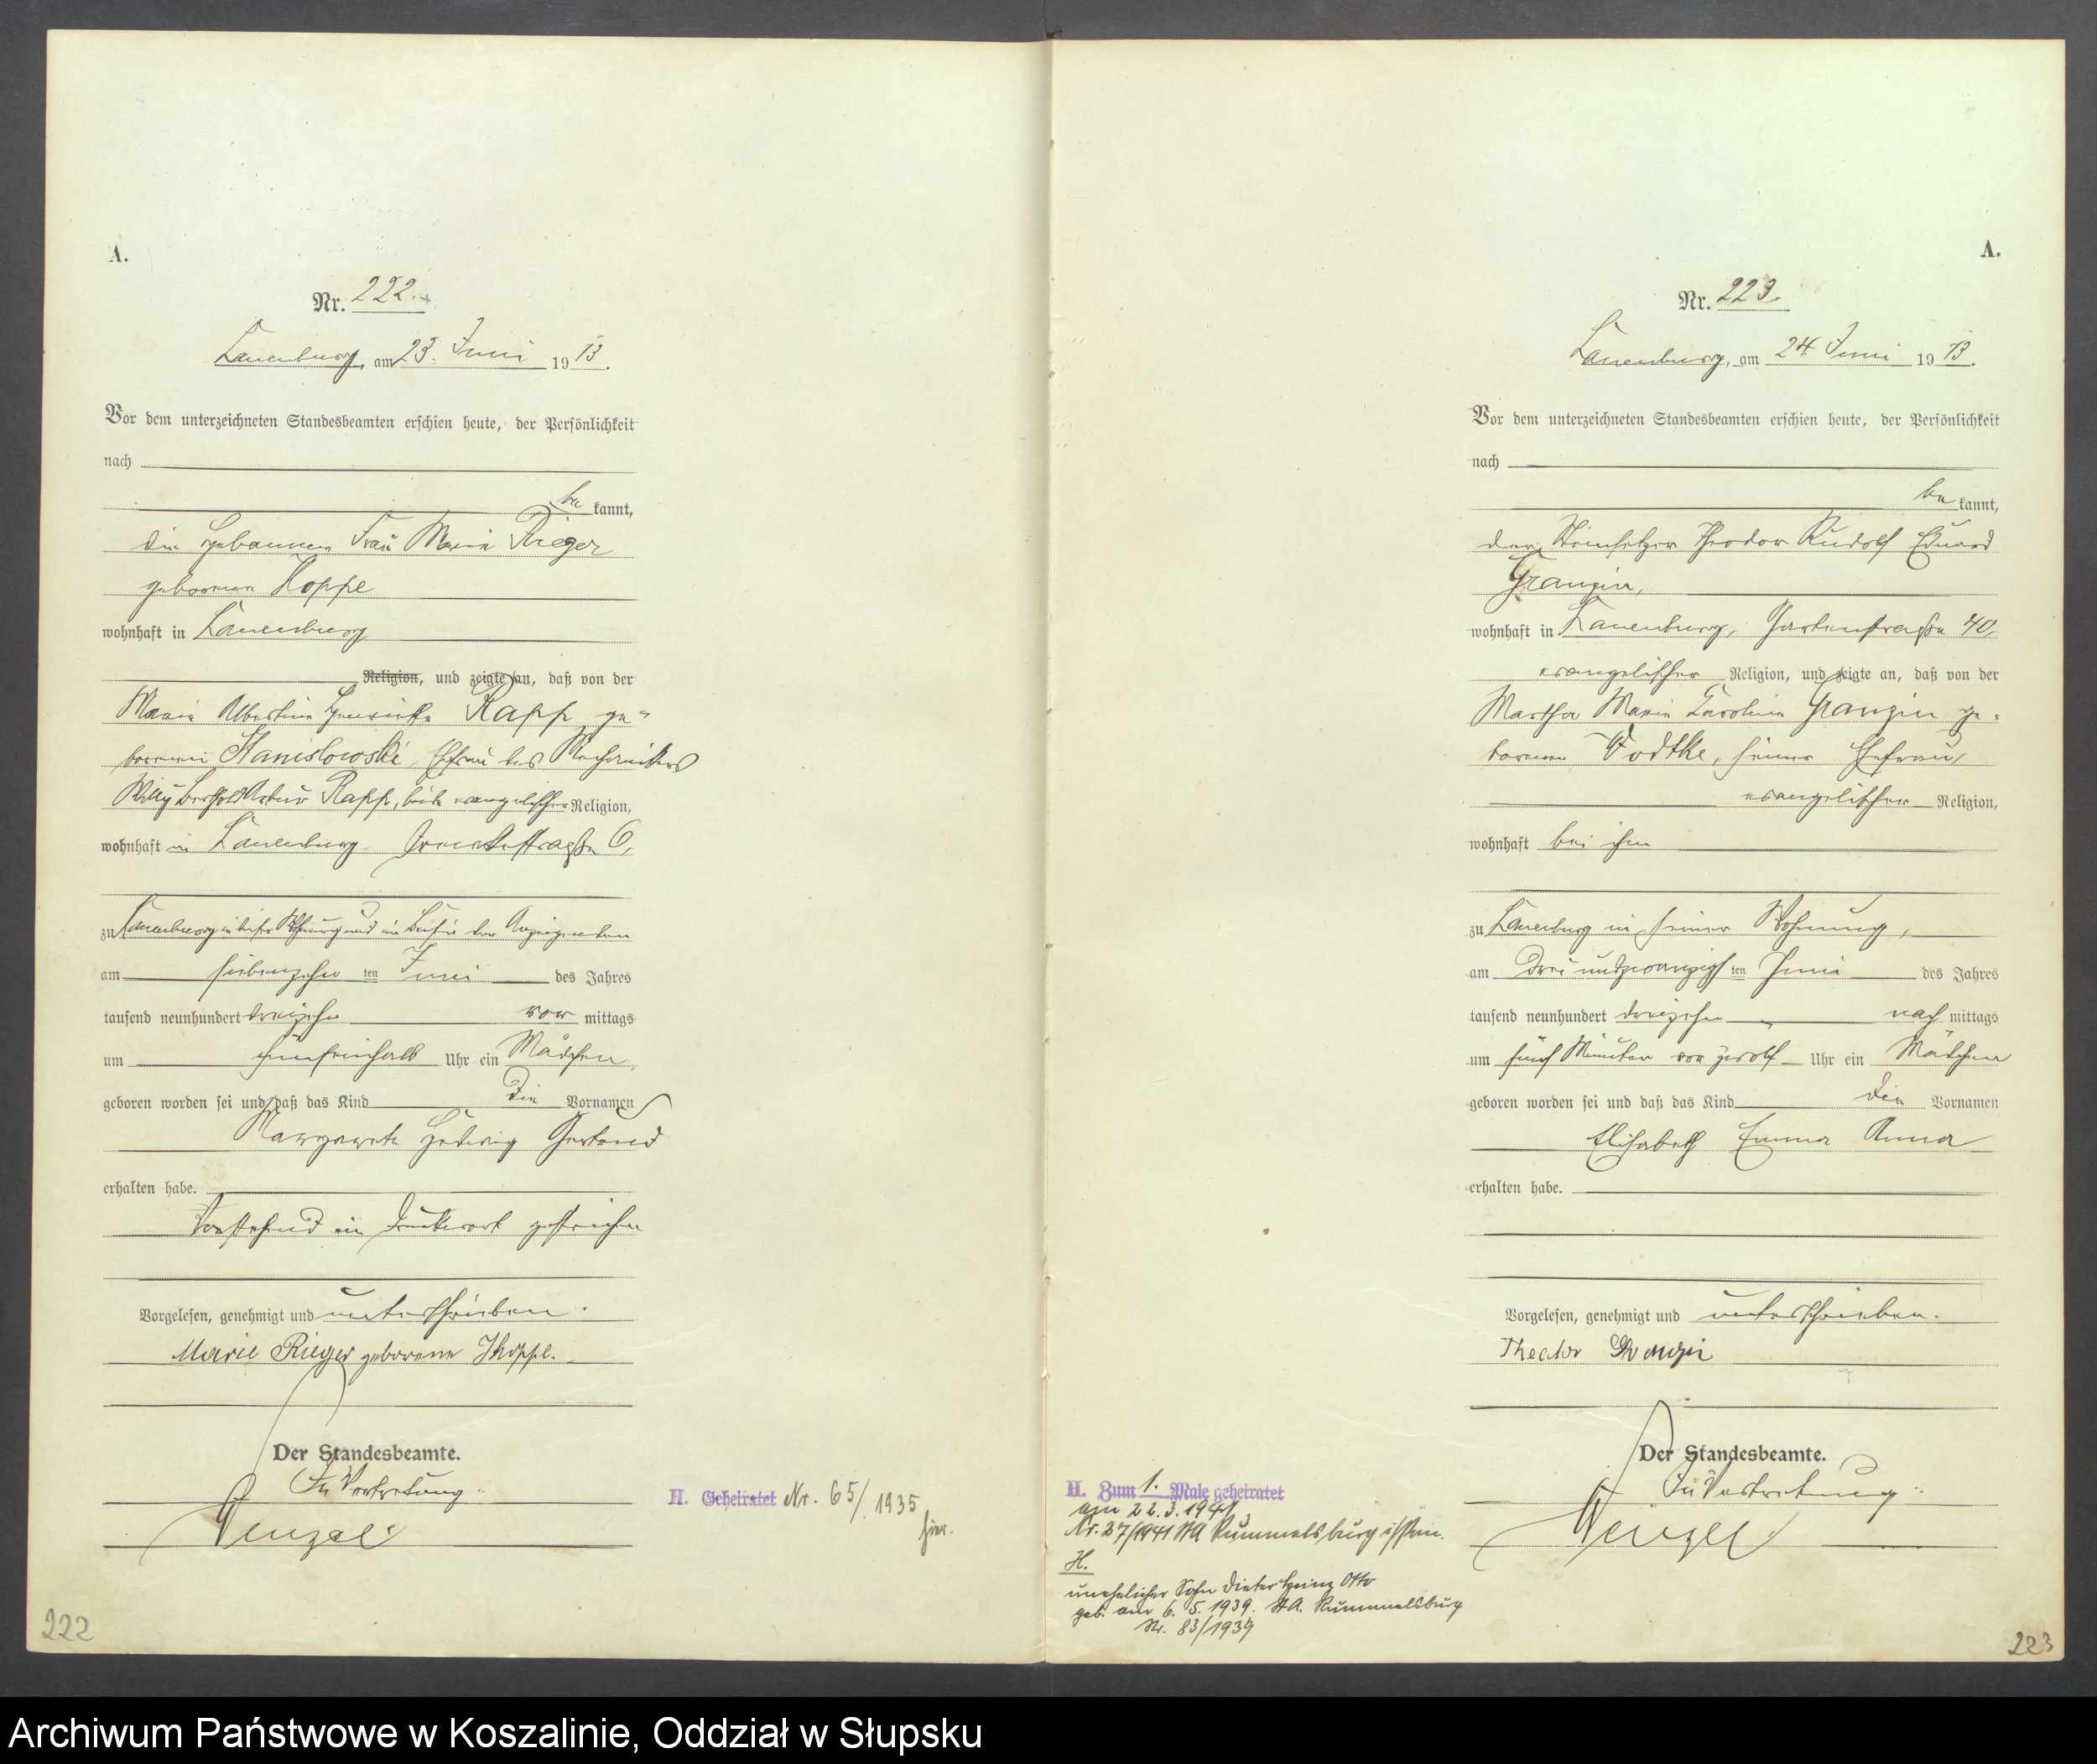 A.
Nr. 222.
Lauenburg, am 23. Juni 1913.
Vor dem unterzeichneten Standesbeamten erschien heute, der Persönlichkeit
nach
be kannt,
die Hebamme Frau Marie Rieger
geborene Koppe
wohnhaft in Lauenburg
Religion, und zeigte an, daß von der
Marie Albertine Rapp ge-
borenen Stanislowski Ehefrau des Mechanikers
Willy Berthold Artur Rapp, beide evangelischer Religion,
wohnhaft in Lauenburg 6,
zu Lauenburg in dieser Wohnung und im Beisein der Anzeigenden
am siebenzehn ten Juni des Jahres
tausend neunhundert dreizehn vor mittags
um Uhr ein Mädchen
geboren worden sei und daß das Kind die Vornamen
Margarete Hedwig Gertrud
erhalten habe.
Vorstehend ein Druckwort gestrichen
Vorgelesen, genehmigt und unterschrieben.
Marie Rieger geborene Koppe.
Der Standesbeamte.
In Vertretung.
Wenzel
H. Geheiratet Nr. 65/1935
hier.
222
A.
Nr. 223.
Lauenburg, am 24. Juni 1913.
Vor dem unterzeichneten Standesbeamten erschien heute, der Persönlichkeit
nach
be kannt,
der Steinsetzer Theodor Rudolf Eduard
Granzin,
wohnhaft in Lauenburg, Gartenstraße 40,
evangelischer Religion, und zeigte an, daß von der
Martha Marie Karoline Granzin ge-
borenen Wodtke, seiner Ehefrau,
evangelischer Religion,
wohnhaft bei ihm
zu Lauenburg in seiner Wohnung,
am drei und zwanzigsten Juni des Jahres
tausend neunhundert dreizehn nach mittags
um fünf Minuten vor zwölf Uhr ein Mädchen
geboren worden sei und daß das Kind die Vornamen
Elisabeth Emma Anna
erhalten habe.
Vorgelesen, genehmigt und unterschrieben.
Theodor Granzin
Der Standesbeamte.
In Vertretung.
Wenzel
H. Zum 1. Male geheiratet
am 22.3.1941
Nr. 27/1941 StA Rummelsburg i/Pom.
H.
unehelicher Sohn Dieter Heinz Otto
geb. am 6. 5. 1939. StA. Rummelsburg
Nr. 83/1939
223
Archiwum Państwowe w Koszalinie, Oddział w Słupsku